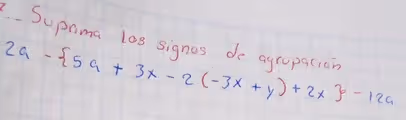 2.. Suprima los signos de agrupación
2a - {5a + 3x - 2 (-3x + y) + 2x } - 12a